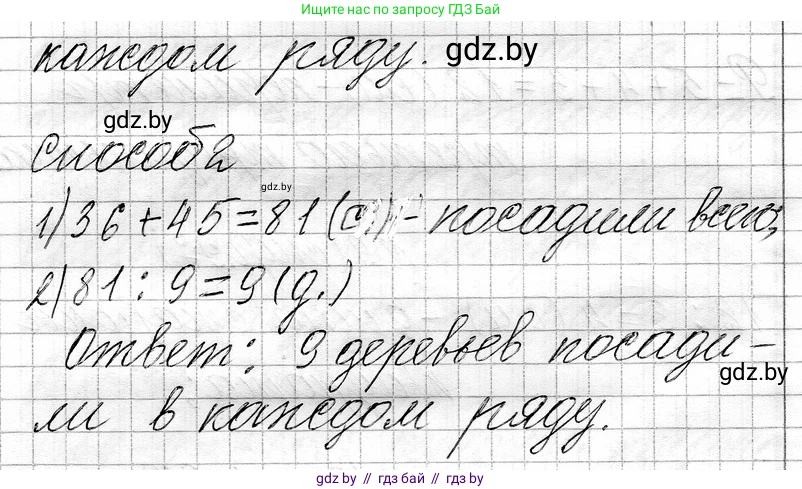 Ищите нас по запросу ГДЗ Бай
каждом ряду. gdz.by
gdz.by
способ 2
gdz.by
1) 36 + 45 = 81 (с.) - посадили всего;
2) 81 : 9 = 9 (д.)
Ответ: 9 деревьев посади-
gdz.by
ли в каждом ряду.
gdz.by // гдз бай // gdz.by